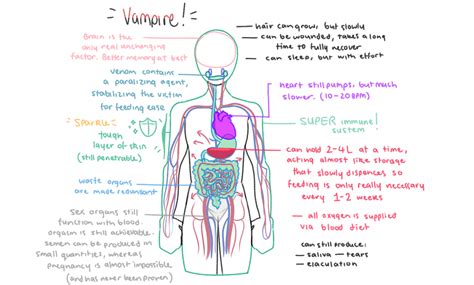 = Vampire! =
Brain is the
only real unchanging
factor. Better memory at best
venom contains
a paralizing agent,
stabilizing the victim
for feeding ease
Sparkle =
tough
layer of skin
(still penetrable)
waste organs
are made redundant
Sex organs still
function with blood.
orgasm is still achievable.
semen can be produced in
small quantities, whereas
pregnancy is almost impossible
(and has never been proven)
— hair can grow, but slowly
— can be wounded, takes a long
time to fully recover
— can sleep, but with effort
heart still pumps, but much
slower. (10-20BPM)
SUPER immune
system!
can hold 2-4L at a time,
acting almost like storage
that slowly dispenses so
feeding is only really necessary
every 1-2 weeks
— all oxygen is supplied
via blood diet
can still produce:
— saliva — tears
— ejaculation